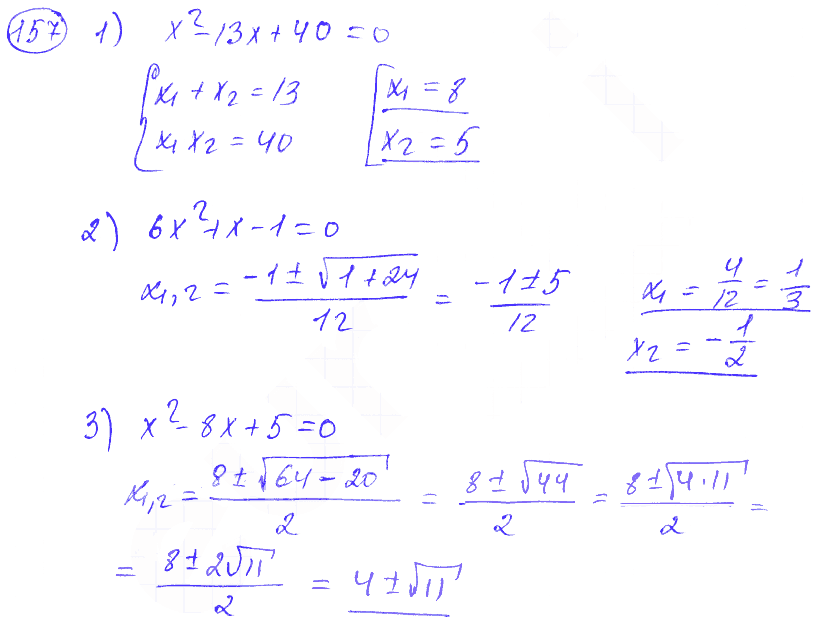 157 1) x² - 13x + 40 = 0
{ x₁ + x₂ = 13 [ x₁ = 8
x₁ x₂ = 40 x₂ = 5
2) 6x² + x - 1 = 0
x₁,₂ = (-1 ± √(1 + 24))/12 = (-1 ± 5)/12 x₁ = 4/12 = 1/3
x₂ = -1/2
3) x² - 8x + 5 = 0
x₁,₂ = (8 ± √(64 - 20))/2 = (8 ± √44)/2 = (8 ± √(4·11))/2 =
= (8 ± 2√11)/2 = 4 ± √11